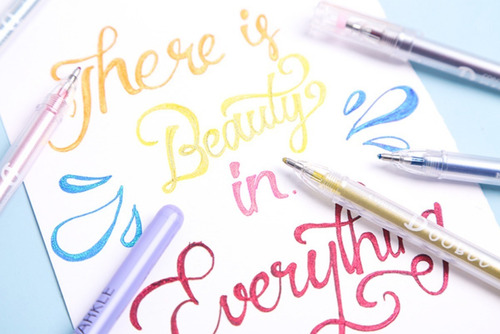 There is
Beauty
in.
Everything